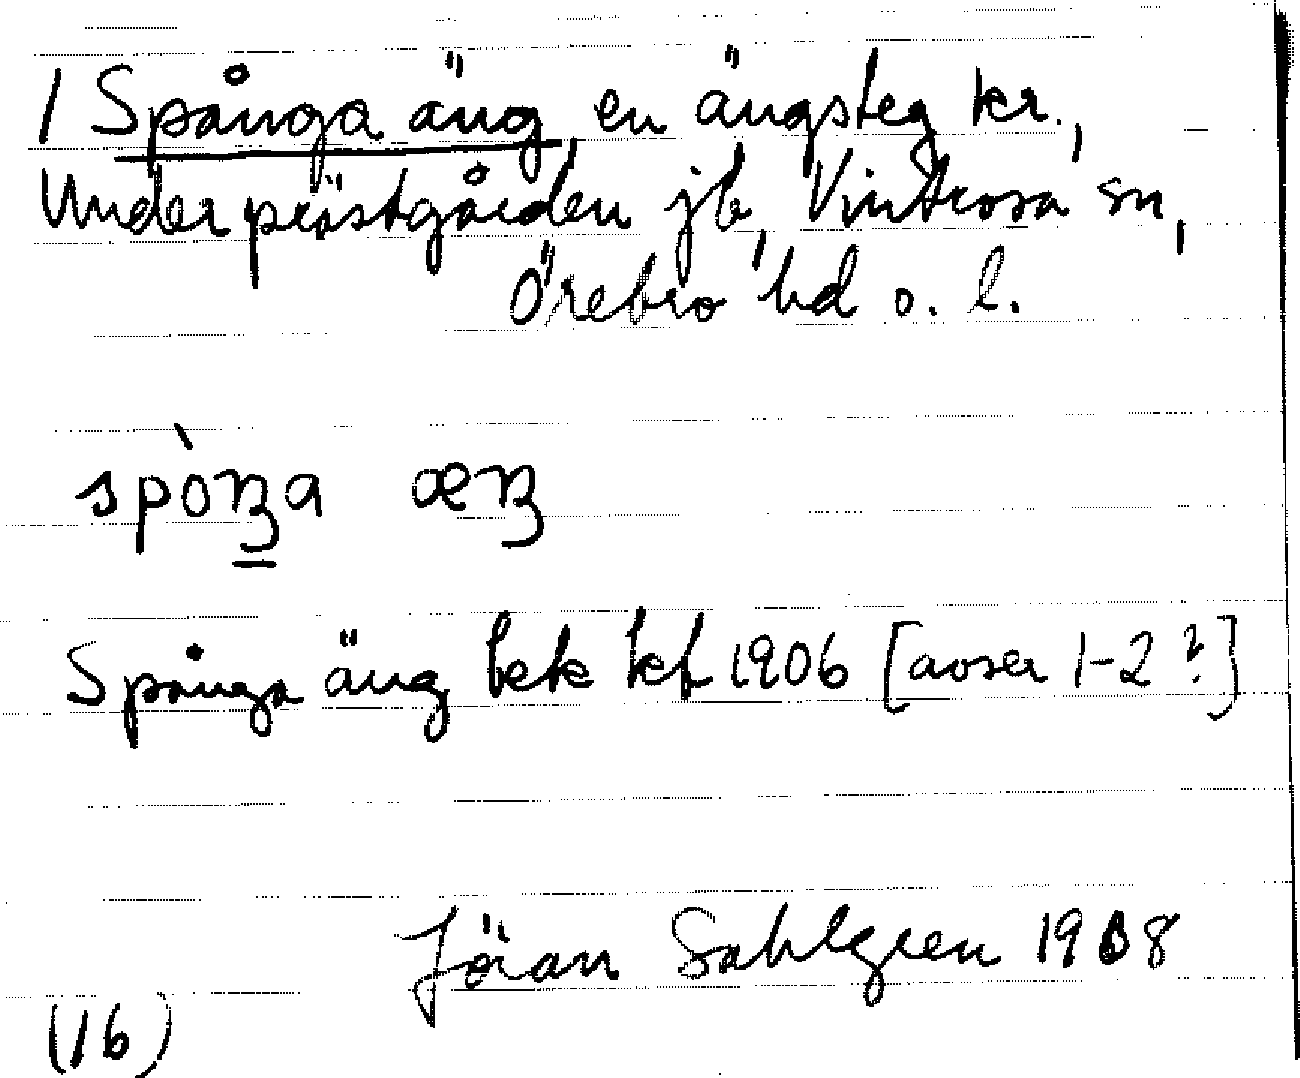 1 Spånga äng en ängsteg kr.,
Underprästgården jb, Vintrosa sn,
Örebro hd o. l.
spòŋa æŋ
Spånga äng bek kf 1906 [avser 1-2?]
Jöran Sahlgren 1908
(16)